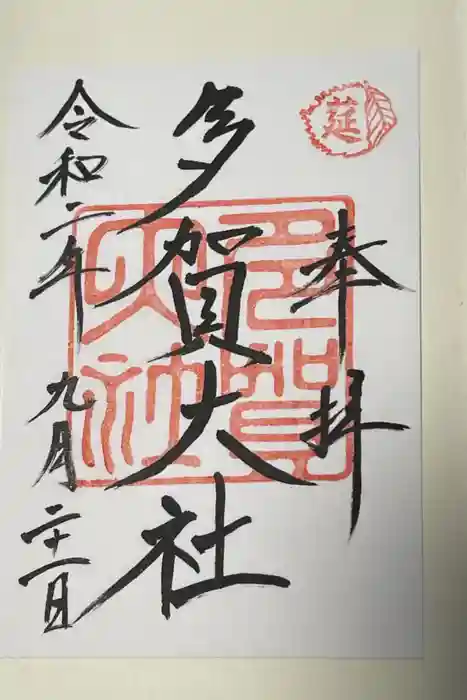 莚
奉拝
多賀大社
多賀大社
令和二年 九月 二十一日